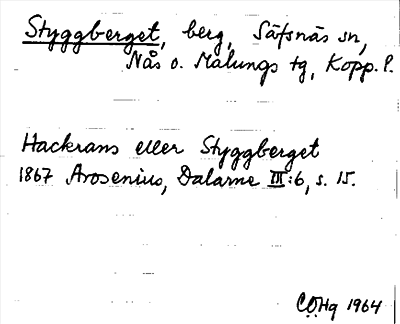 Styggberget, berg, Säfsnäs sn,
Nås o. Malungs tg, Kopp. l.
Hackrans eller Styggberget
1867 Arosenius, Dalarne III:6, s. 15.
C.O.Hg 1964